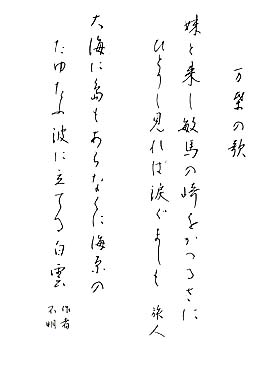 万葉の歌
妹と来し敏馬の崎をかへるさに
ひとりし見れば涙ぐましも 旅人
大海に島もあらなくに海原の
たゆたふ波に立てる白雲 作者
不明